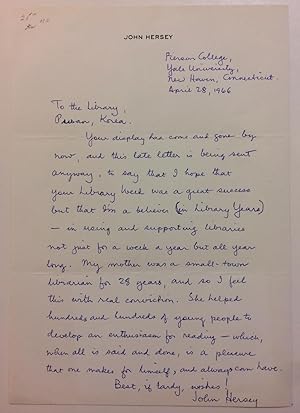 JOHN HERSEY
Pierson College,
Yale University,
New Haven, Connecticut.
April 28, 1966
To the Library,
Pusan, Korea.
Your display has come and gone by
now, and this late letter is being sent
anyway, to say that I hope that
your Library Week was a great success
but that I'm a believer (in Library Years)
— in using and supporting libraries
not just for a week a year but all year
long. My mother was a small-town
librarian for 28 years, and so I feel
this with real conviction. She helped
hundreds and hundreds of young people to
develop an enthusiasm for reading — which,
when all is said and done, is a pleasure
that one makes for himself, and always can have.
Best, if tardy, wishes!
John Hersey